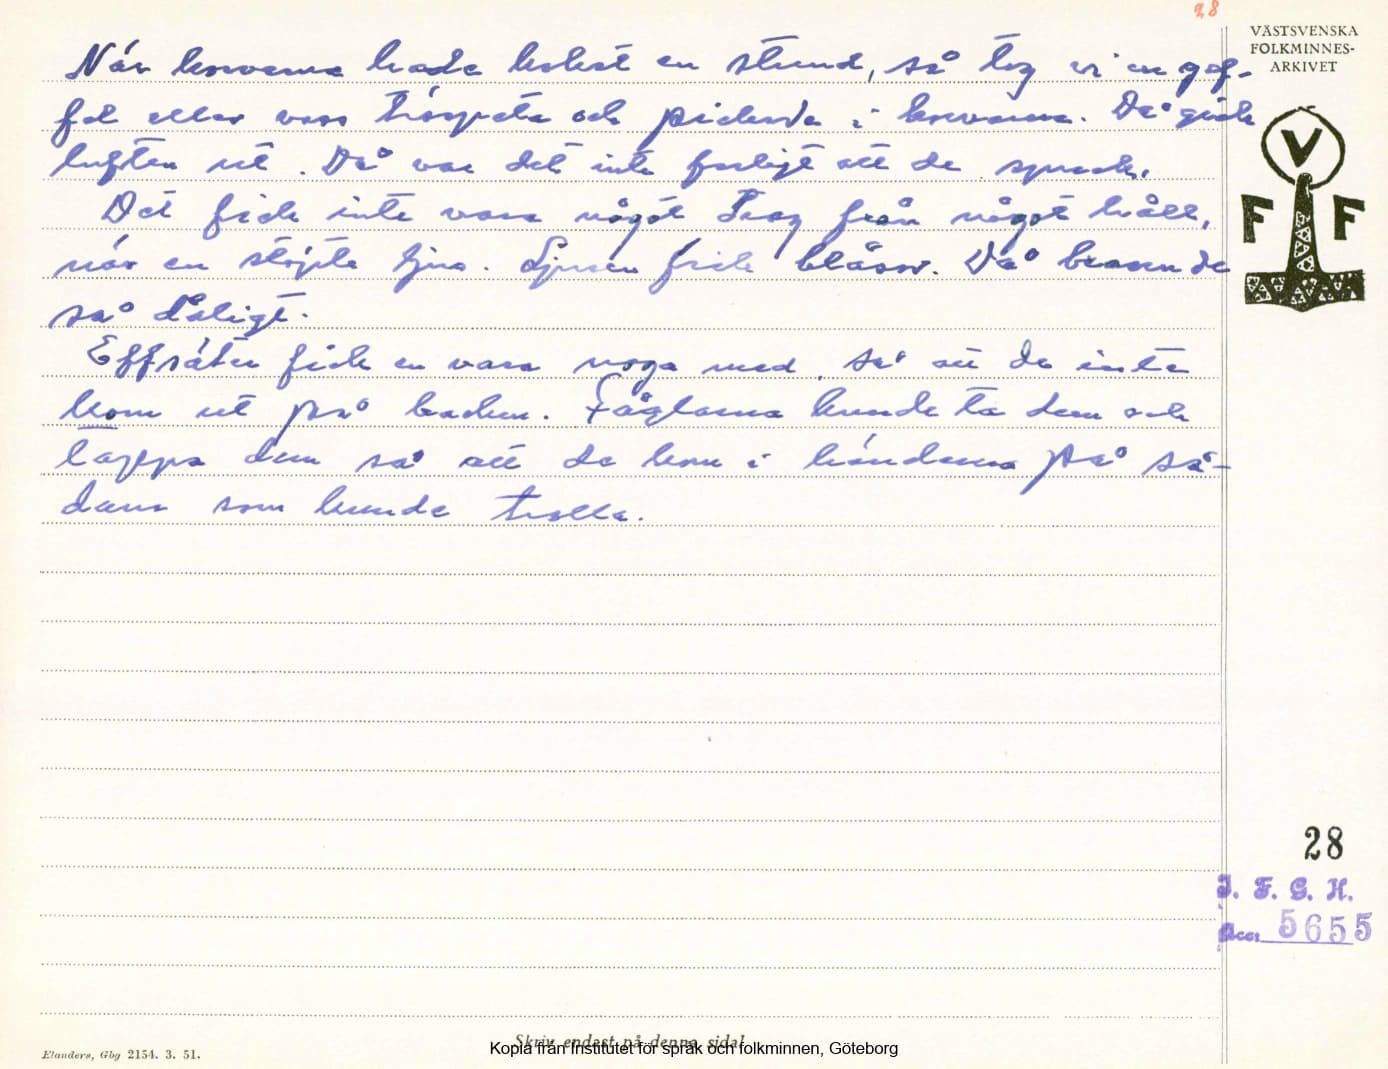 28
VÄSTSVENSKA
FOLKMINNES-
ARKIVET
När korvarna hade kokat en stund, så tog vi en gaf-
fel eller vass träspeta och pickade i korvarna. Då gick
luften ut. Då var det inte farligt att de sprack.
Det fick inte vara något drag från något håll,
när en stöpte ljus. Ljusen fick blåsor. Då brann de
så dåligt.
fick en vara noga med. Så att de inte
kom ut på backen. Fåglarna kunde ta dem och
tappa dem så att de kom i händerna på så-
dana som kunde trolla.
V
F F
28
I. F. G. H.
Acc. 5655
Skriv endast på denna sida!
Elanders, Gbg 2154. 3. 51.
Kopia från Institutet för språk och folkminnen, Göteborg